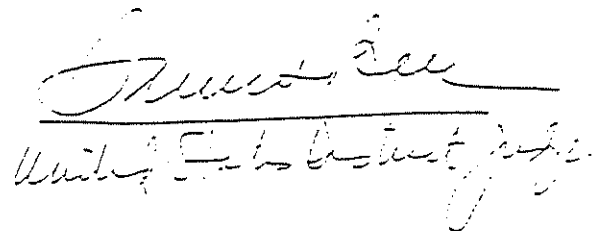 Lee
United States District Judge